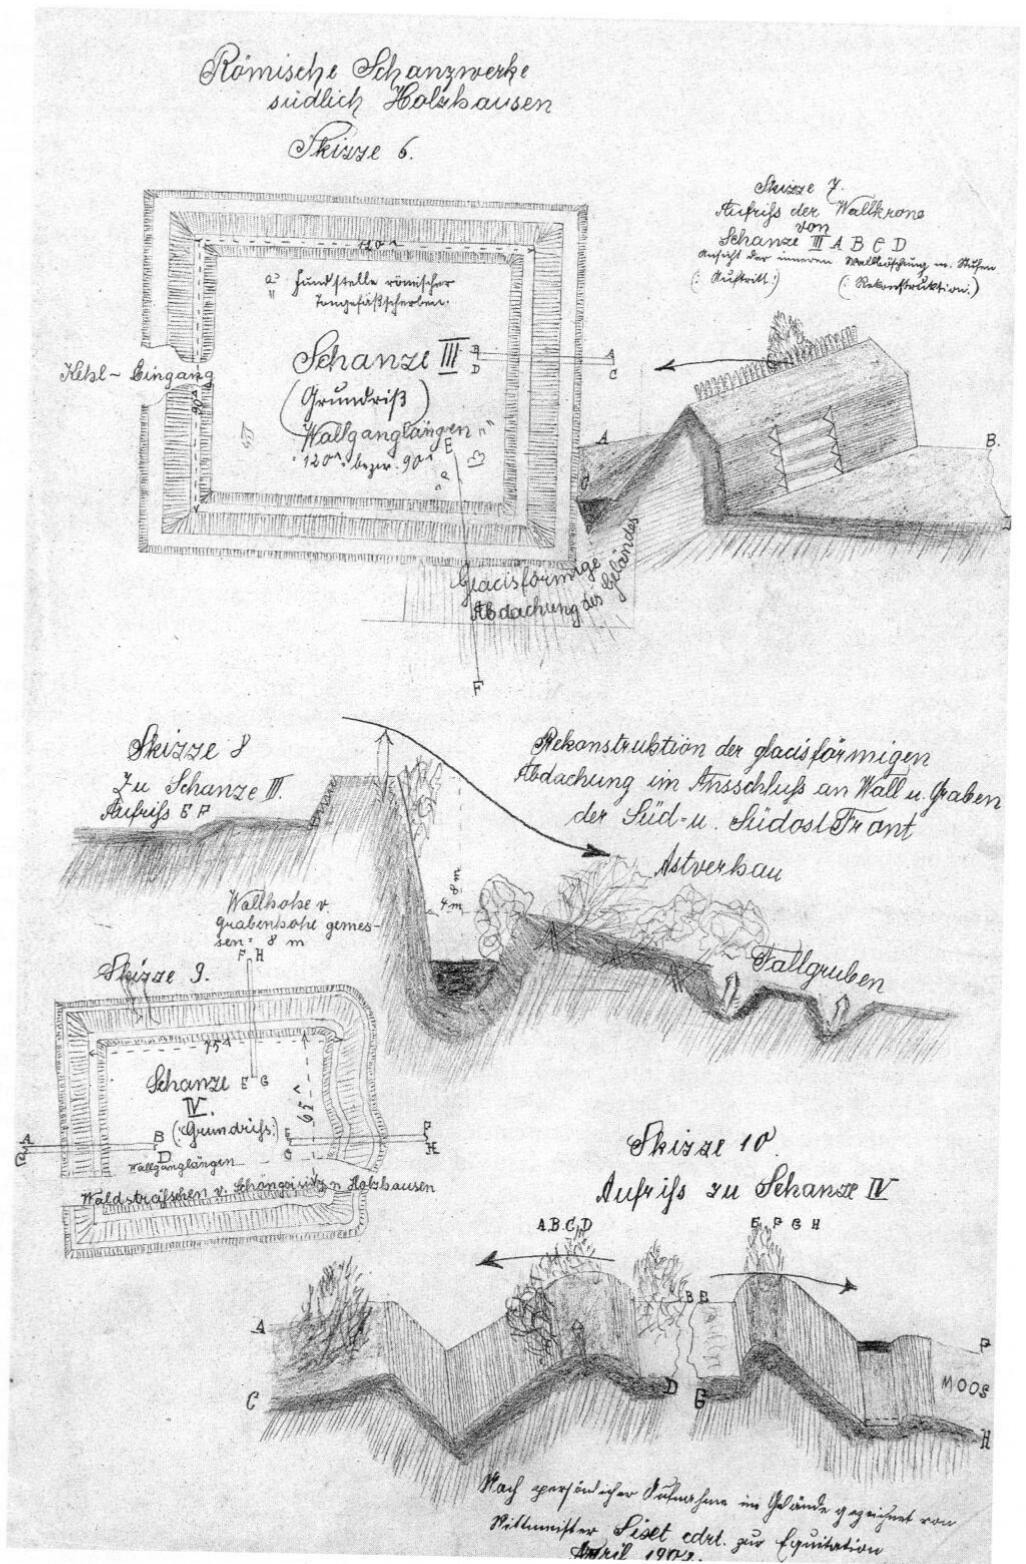 Römische Schanzwerke
südlich Holzhausen
Skizze 6.
120ˣ
a" Fundstelle römischer
Tongefäßscherben.
Schanze III
(Grundriß)
Wallganglängen
120ˣ bezw. 90ˣ
Kehl-Eingang
90ˣ
B
D
A
C
E
F
Glacisförmige
Abdachung des Geländes
Skizze 7.
Aufriss der Wallkrone
von
Schanze III A B C D
Ansicht der inneren Wallböschung m. Stufen
(: Auftritt :) (: Rekonstruktion.)
A
B.
C
Skizze 8
Zu Schanze III.
Aufriss E F
Rekonstruktion der glacisförmigen
Abdachung im Ansschluss an Wall u. Graben
der Süd- u. Südost Front
Astverhau
Fallgruben
8 m
4 m
Wallhöhe v.
Grabenhöhe gemes-
sen = 8 m
Skizze 9.
F H
75ˣ
65ˣ
Schanze E G
IV.
(: Grundriss :)
Wallganglängen
A
C
B
D
E
G
F
H
Waldsträsschen v. Holzhausen
Skizze 10.
Aufriss zu Schanze IV
A B C D
E F G H
A
C
B E
D
G
F
MOOS
H
Nach persönlicher Aufnahme im Gelände gezeichnet von
Rittmeister cdrt. zur Equitation
April